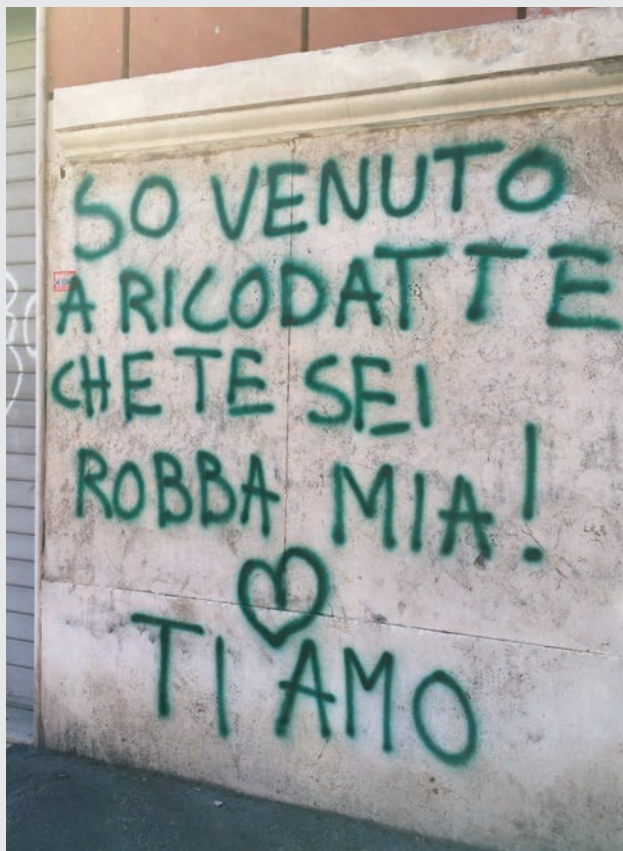 SO VENUTO
A RICODATTE
CHE TE SEI
ROBBA MIA!
TI AMO